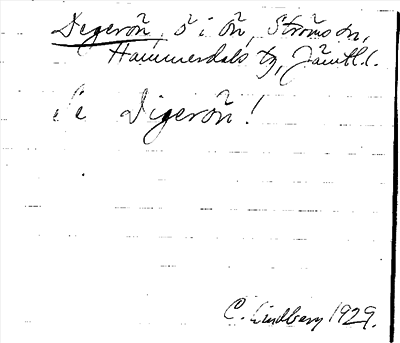 Degerön, ö i ån, Ströms sn,
Hammerdals tg, Jämtl. l.
Se Digerön!
C. Lindberg 1929.